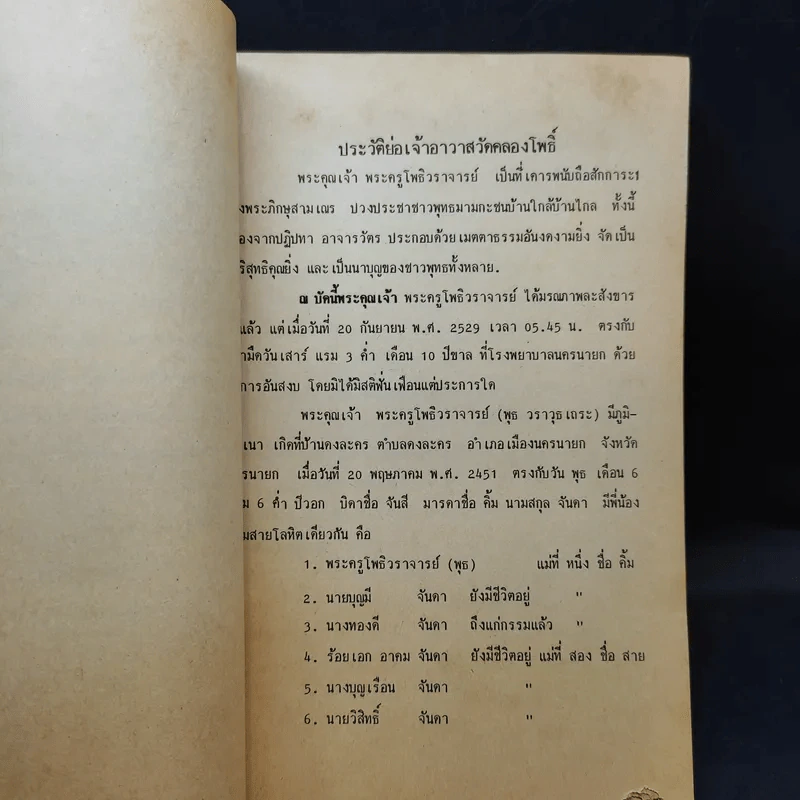 ประวัติย่อเจ้าอาวาสวัดคลองโพธิ์
พระคุณเจ้า พระครูโพธิวราจารย์ เป็นที่เคารพนับถือสักการะ
งพระภิกษุสามเณร ปวงประชาชาวพุทธมามกะชนบ้านใกล้บ้านไกล ทั้งนี้
องจากปฏิปทา อาจารวัตร ประกอบด้วยเมตตาธรรมอันงดงามยิ่ง จัดเป็น
ริสุทธิคุณยิ่ง และเป็นนาบุญของชาวพุทธทั้งหลาย.
ณ บัดนี้พระคุณเจ้า พระครูโพธิวราจารย์ ได้มรณภาพละสังขาร
แล้ว แต่เมื่อวันที่ 20 กันยายน พ.ศ. 2529 เวลา 05.45 น. ตรงกับ
ามืดวันเสาร์ แรม 3 ค่ำ เดือน 10 ปีขาล ที่โรงพยาบาลนครนายก ด้วย
การอันสงบ โดยมิได้มีสติฟั่นเฟือนแต่ประการใด
พระคุณเจ้า พระครูโพธิวราจารย์ (พุธ วราวุธเถระ) มีภูมิ-
เนา เกิดที่บ้านดงละคร ตำบลดงละคร อำเภอเมืองนครนายก จังหวัด
รนายก เมื่อวันที่ 20 พฤษภาคม พ.ศ. 2451 ตรงกับวัน พุธ เดือน 6
ม 6 ค่ำ ปีวอก บิดาชื่อ จันสี มารดาชื่อ คิ้ม นามสกุล จันดา มีพี่น้อง
มสายโลหิตเดียวกัน คือ
1. พระครูโพธิวราจารย์ (พุธ) แม่ที่ หนึ่ง ชื่อ คิ้ม
2. นายบุญมี จันดา ยังมีชีวิตอยู่ "
3. นางทองดี จันดา ถึงแก่กรรมแล้ว "
4. ร้อยเอก อาคม จันดา ยังมีชีวิตอยู่ แม่ที่ สอง ชื่อ สาย
5. นางบุญเรือน จันดา "
6. นายวิสิทธิ์ จันดา "